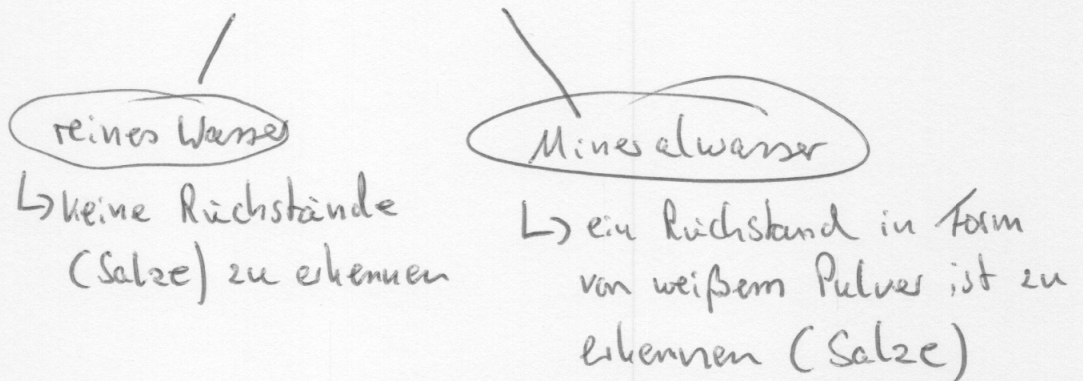 reines Wasser
↳ keine Rückstände
(Salze) zu erkennen
Mineralwasser
↳ ein Rückstand in Form
von weißem Pulver ist zu
erkennen (Salze)